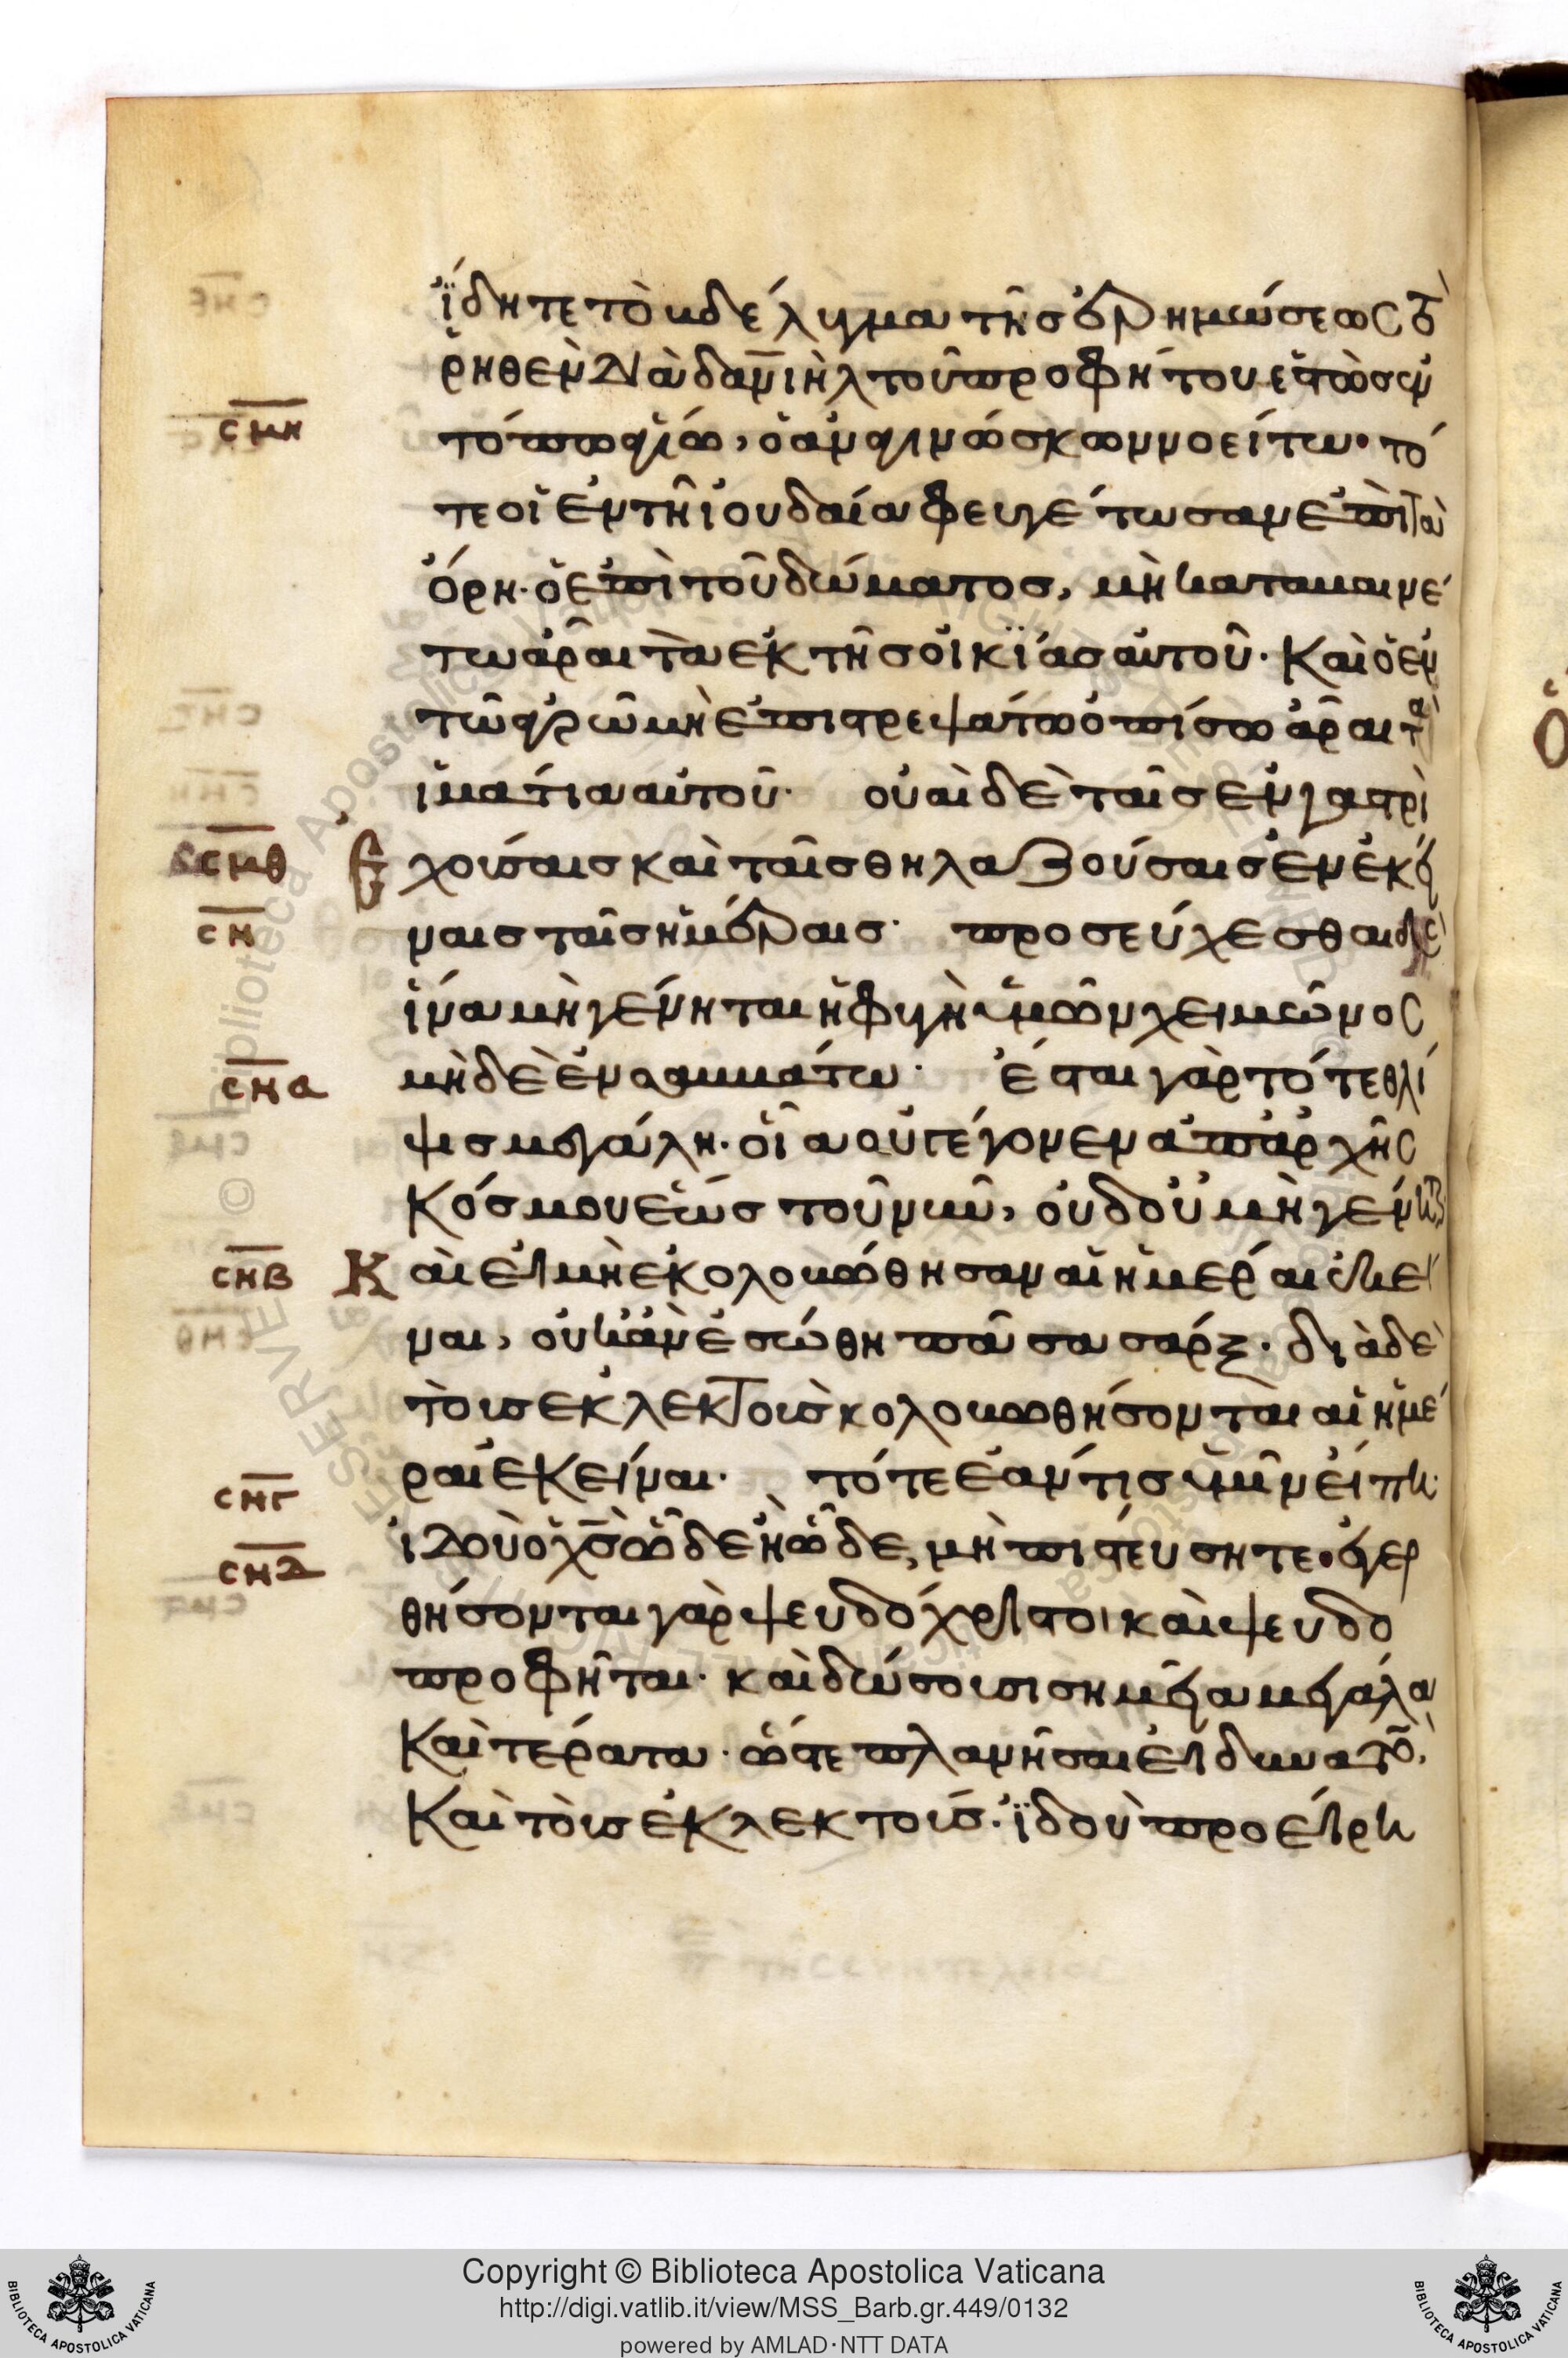 ἴδητε τὸ βδέλυγμα τῆς ἐρημώσεως τὸ
ῥηθὲν διὰ δανιὴλ τοῦ προφήτου ἑστὼς ἐν
σμη
τόπω ἁγίω, ὁ ἀναγινώσκων νοείτω· τό
τε οἱ ἐν τῆ ἰουδαία φευγέτωσαν ἐπὶ τὰ
ὄρη· ὁ ἐπὶ τοῦ δώματος, μὴ καταβαινέ
τω ἆραι τὰ ἐκ τῆς οἰκΐας αὐτοῦ· καὶ ὁ ἐν
τῶ ἀγρῶ μὴ ἐπιστρεψάτω ὀπίσω ἆραι τὰ
ἱμάτια αὐτοῦ· οὐαὶ δὲ ταῖς ἐν γαστρὶ
σμθ
ἐχούσαις καὶ ταῖς θηλαζούσαις ἐν ἐκεί
ση
ναις ταῖς ἡμέραις· προσεύχεσθαι δὲ
ἵνα μὴ γένηται ἡ φυγὴ ὑμῶν χειμῶνος
σηα
μὴδὲ ἐν σαββάτω· ἔσται γὰρ τότε θλί
ψις μεγάλη· οἵα οὐ γέγονεν ἀπ ἀρχῆς
κόσμου ἕως τοῦ νῦν, οὐδ οὐ μὴ γένηται
σηβ
Καὶ εἰ μὴ ἐκολοβώθησαν αἱ ἡμέραι ἐκεῖ
ναι, οὐκ ἂν ἐσώθη πᾶσα σάρξ· διὰ δὲ
τοὺς ἐκλεκτοὺς κολοβωθήσονται αἱ ἡμέ
ραι ἐκεῖναι· τότε ἐάν τις ὑμῖν εἴπη·
σηγ
ἰδοὺ ὁ χς ὧδε ἢ ὧδε, μὴ πιστεύσητε· ἐγερ
σηδ
θήσονται γὰρ ψευδόχριστοι καὶ ψευδο
προφῆται· καὶ δώσουσι σημεῖα μεγάλα
καὶ τέρατα· ὥστε πλανῆσαι εἰ δυνατὸν,
καὶ τοὺς ἐκλεκτούς· ἰδοὺ προείρη
Copyright © Biblioteca Apostolica Vaticana
http://digi.vatlib.it/view/MSS_Barb.gr.449/0132
powered by AMLAD·NTT DATA
BIBLIOTECA APOSTOLICA VATICANA
BIBLIOTECA APOSTOLICA VATICANA